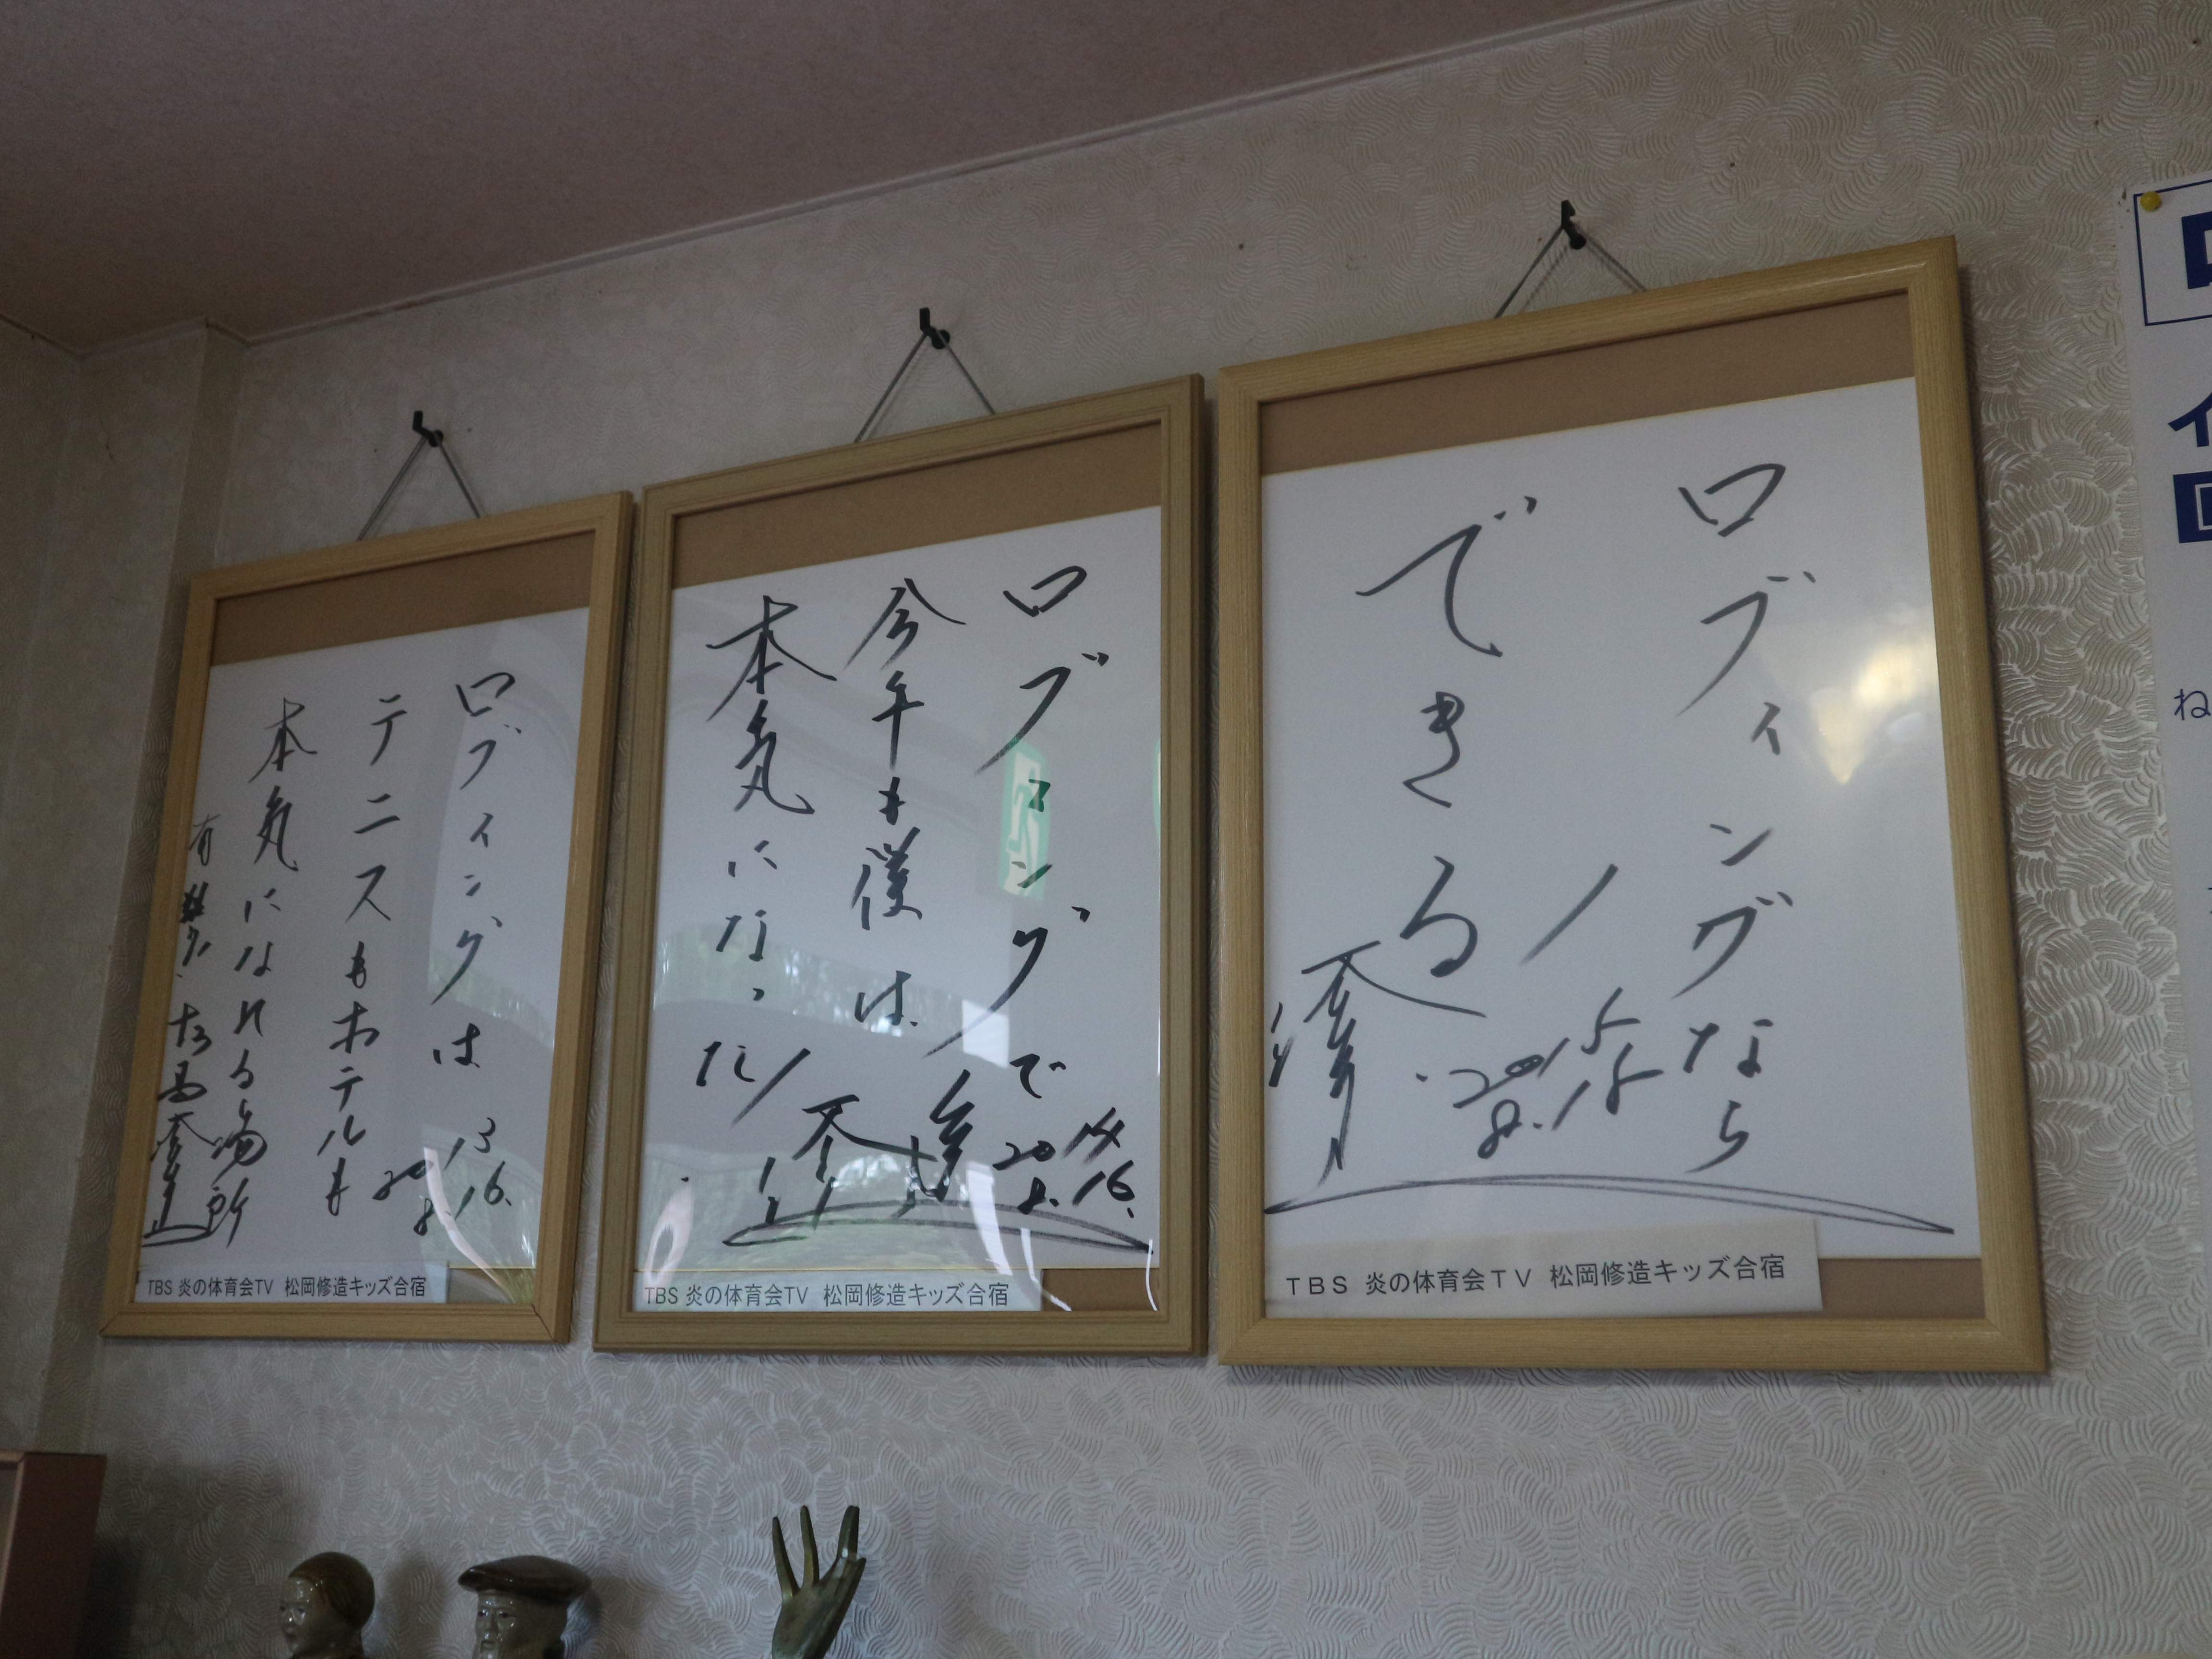 ロブィングは
テニスもホテルも
本気になれる場所
2013
8.16.
TBS 炎の体育会TV 松岡修造キッズ合宿
ロブィングで
今年も僕は
本気になった!
2014
8.16.
TBS 炎の体育会TV 松岡修造キッズ合宿
ロブィングなら
できる!
2015
8.15
TBS 炎の体育会TV 松岡修造キッズ合宿
ね